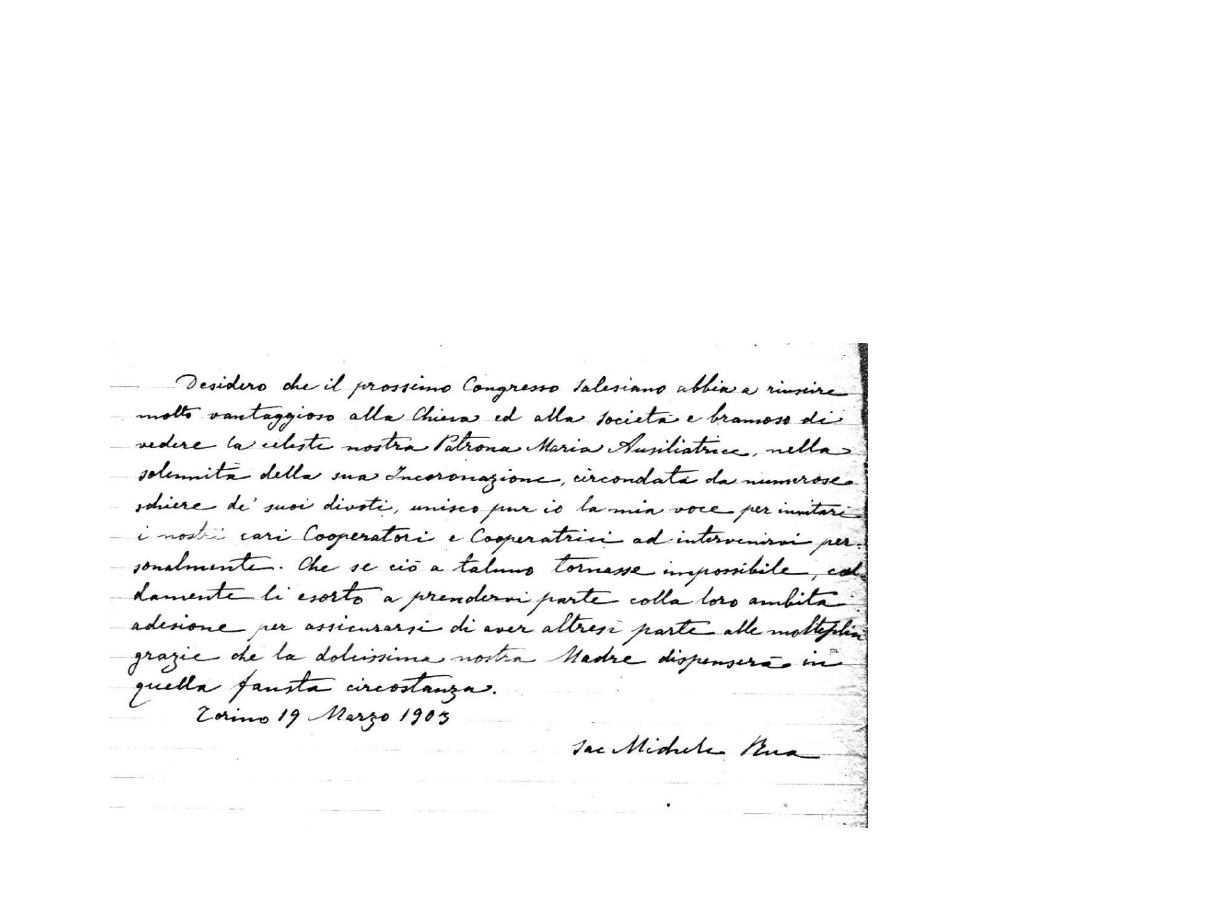 Desidero che il prossimo Congresso Salesiano abbia a riuscire
molto vantaggioso alla Chiesa ed alla Società e bramoso di
vedere la celeste nostra Patrona Maria Ausiliatrice, nella
solennità della sua Incoronazione, circondata da numerose
schiere de' suoi divoti, unisco pur io la mia voce per invitare
i nostri cari Cooperatori e Cooperatrici ad intervenirvi per-
sonalmente. Che se ciò a taluno tornasse impossibile, cal
damente li esorto a prendervi parte colla loro ambita
adesione per assicurarsi di aver altresì parte alle molteplici
grazie che la dolcissima nostra Madre dispenserà in
quella fausta circostanza.
Torino 19 Marzo 1903
Sac Michele Rua